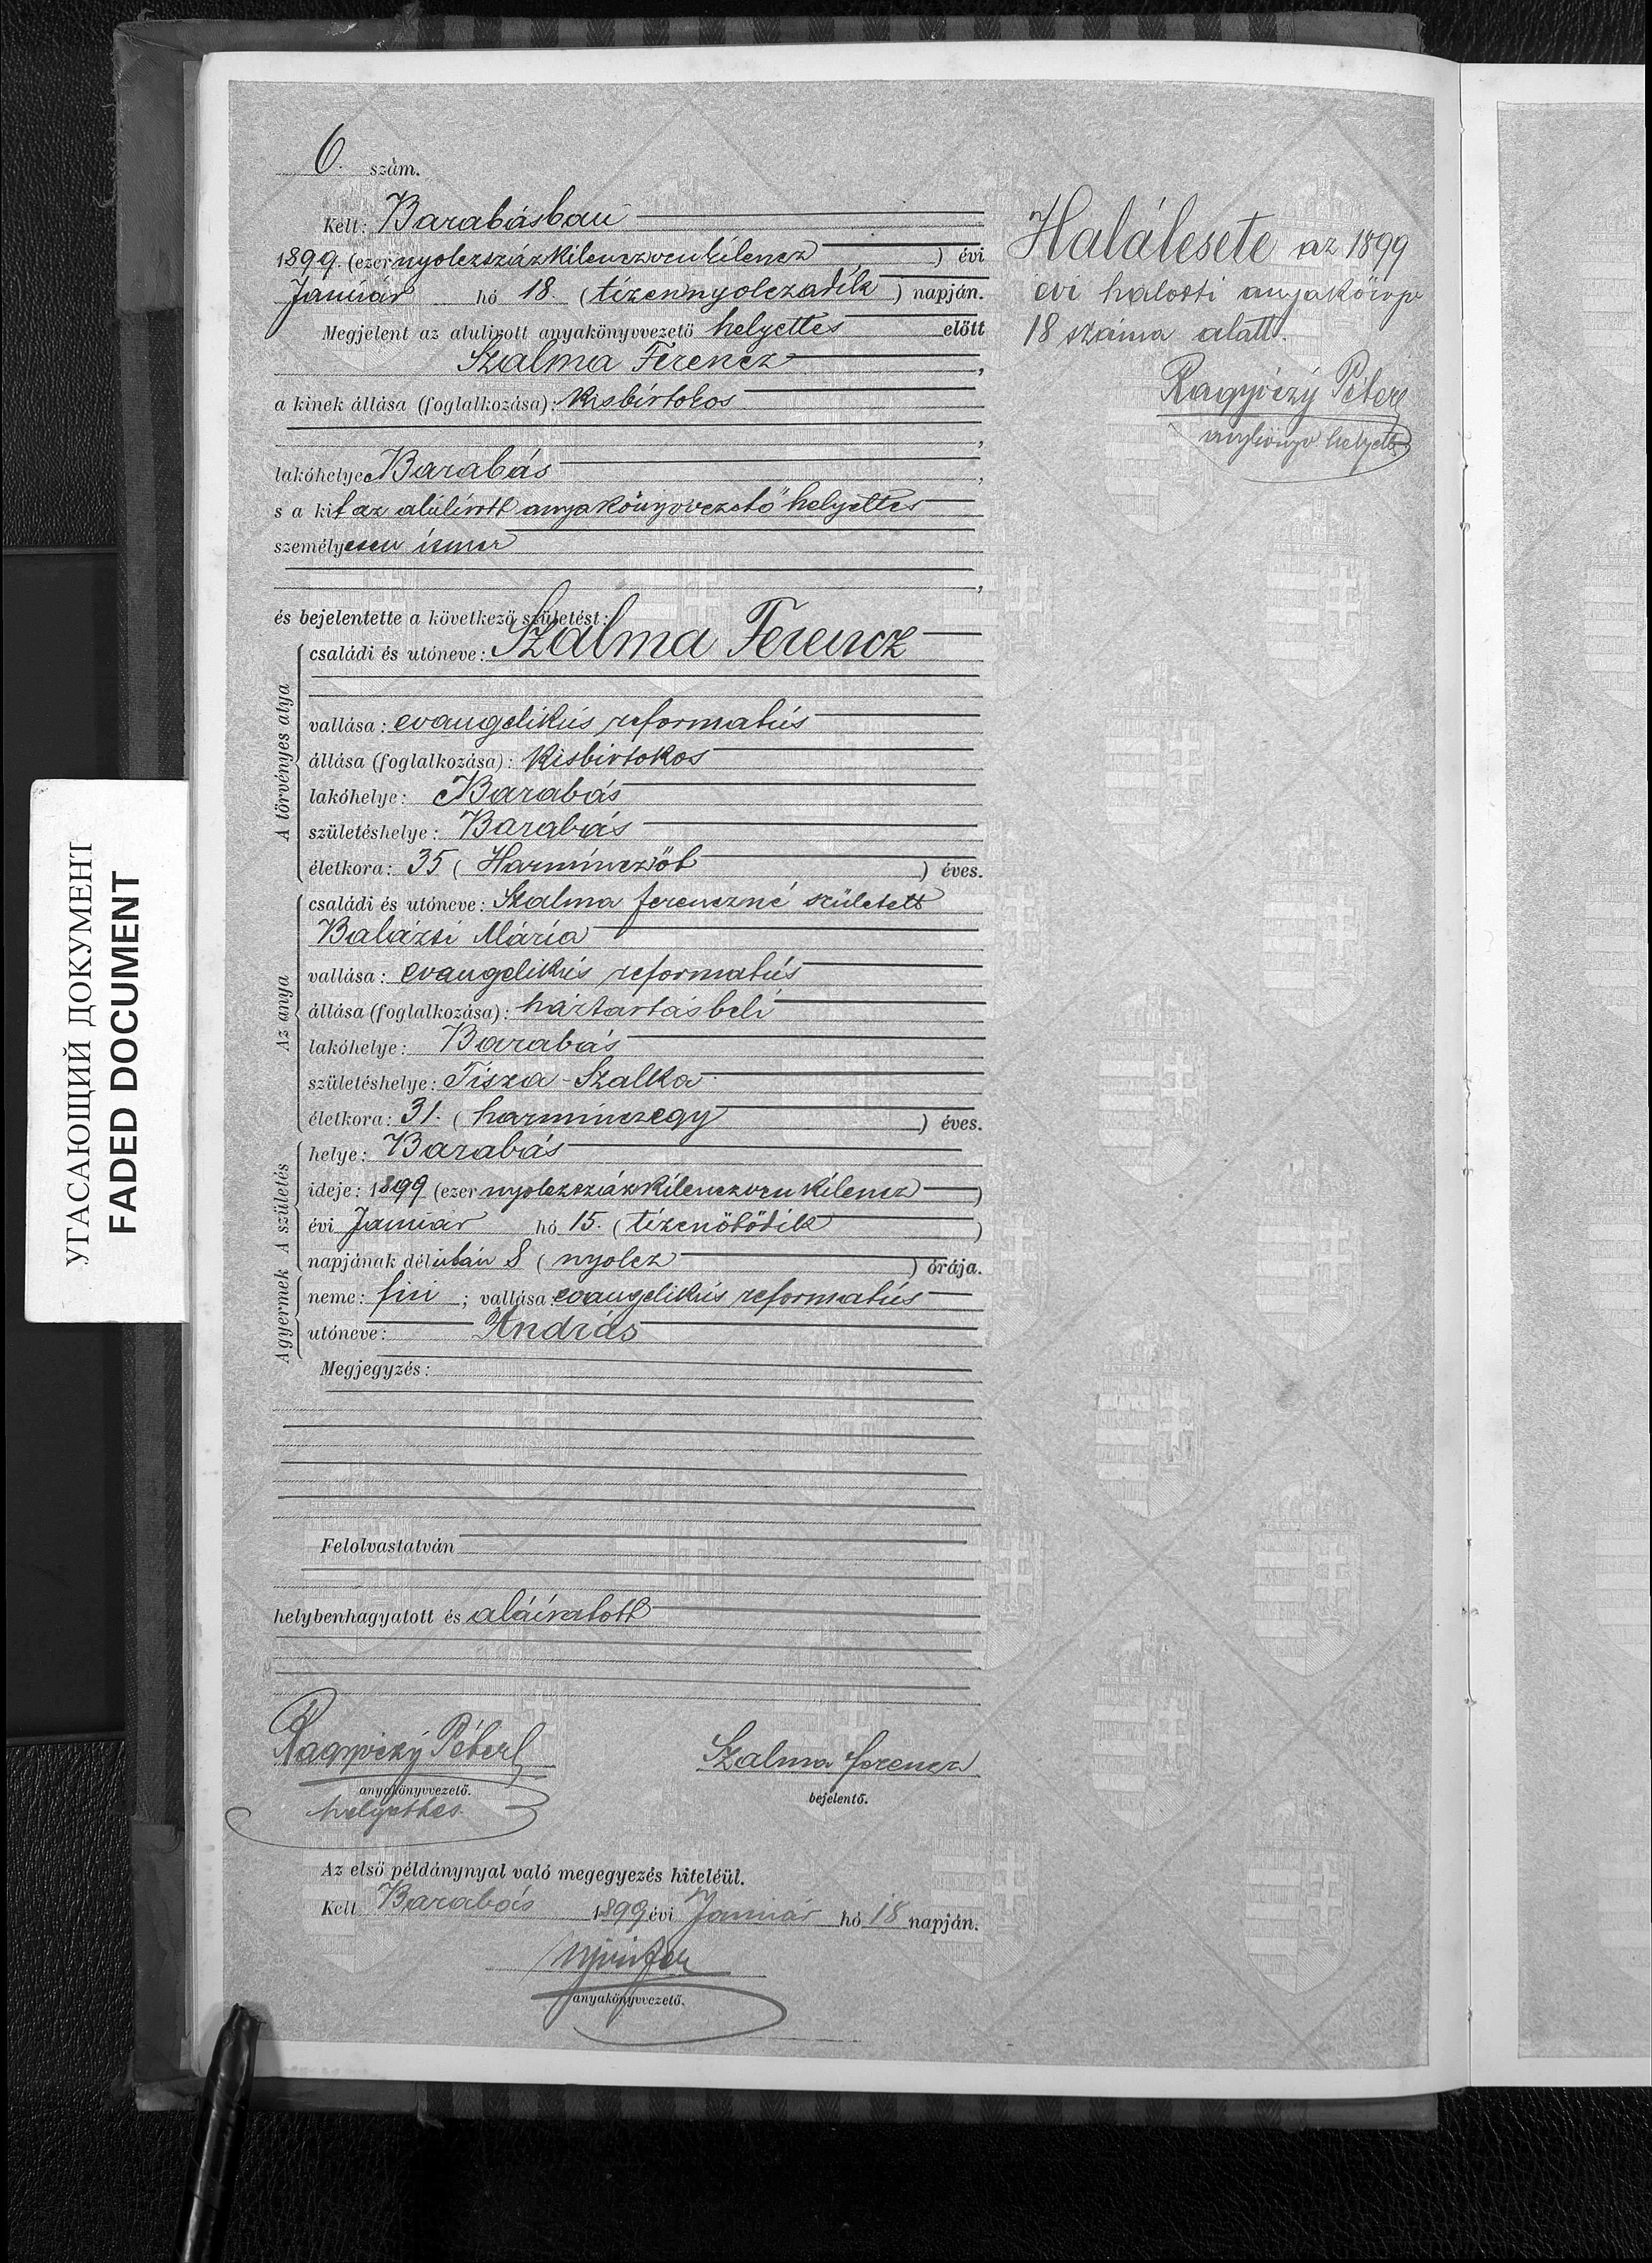 6. szám.
Kelt: Barabásban
1899. (ezer nyolczszázkilenczvenkilencz) évi
Január hó 18. (tizennyolczadik) napján.
Megjelent az alulirott anyakönyvvezető helyettes előtt
Szalma Ferencz,
a kinek állása (foglalkozása): Kisbirtokos
,
lakóhelye Barabás,
s a kit az alúlírott anyakönyvvezető helyettes
személyesen ismer
,
és bejelentette a következő születést:
A törvényes atya
családi és utóneve: Szalma Ferencz
vallása: evangelikús reformatús
állása (foglalkozása): Kisbirtokos
lakóhelye: Barabás
születéshelye: Barabás
életkora: 35 (Harminczöt) éves.
Az anya
családi és utóneve: Szalma ferenczné született
Balázsi Mária
vallása: evangelikús reformatús
állása (foglalkozása): háztartásbeli
lakóhelye: Barabás
születéshelye: Tisza-Szalka
életkora: 31. (harminczegy) éves.
A születés
helye: Barabás
ideje: 1899 (ezer nyolczszázkilenczvenkilencz)
évi Január hó 15. (tizenötödik)
napjának délután 8 (nyolcz) órája.
A gyermek
neme: fiú; vallása: evangelikús reformatús
utóneve: András
Megjegyzés:
Felolvastatván
helybenhagyatott és aláíratott
Ragyóczy Péter
anyakönyvvezető.
helyettes
Szalma ferencz
bejelentő.
Az első példánynyal való megegyezés hiteléül.
Kelt Barabás 1899 évi Január hó 18 napján.
anyakönyvvezető.
Halálesete az 1899
évi halotti anyakönyv
18 száma alatt.
Ragyóczy Péter
anykönyv helyett
УГАСАЮЩИЙ ДОКУМЕНТ
FADED DOCUMENT